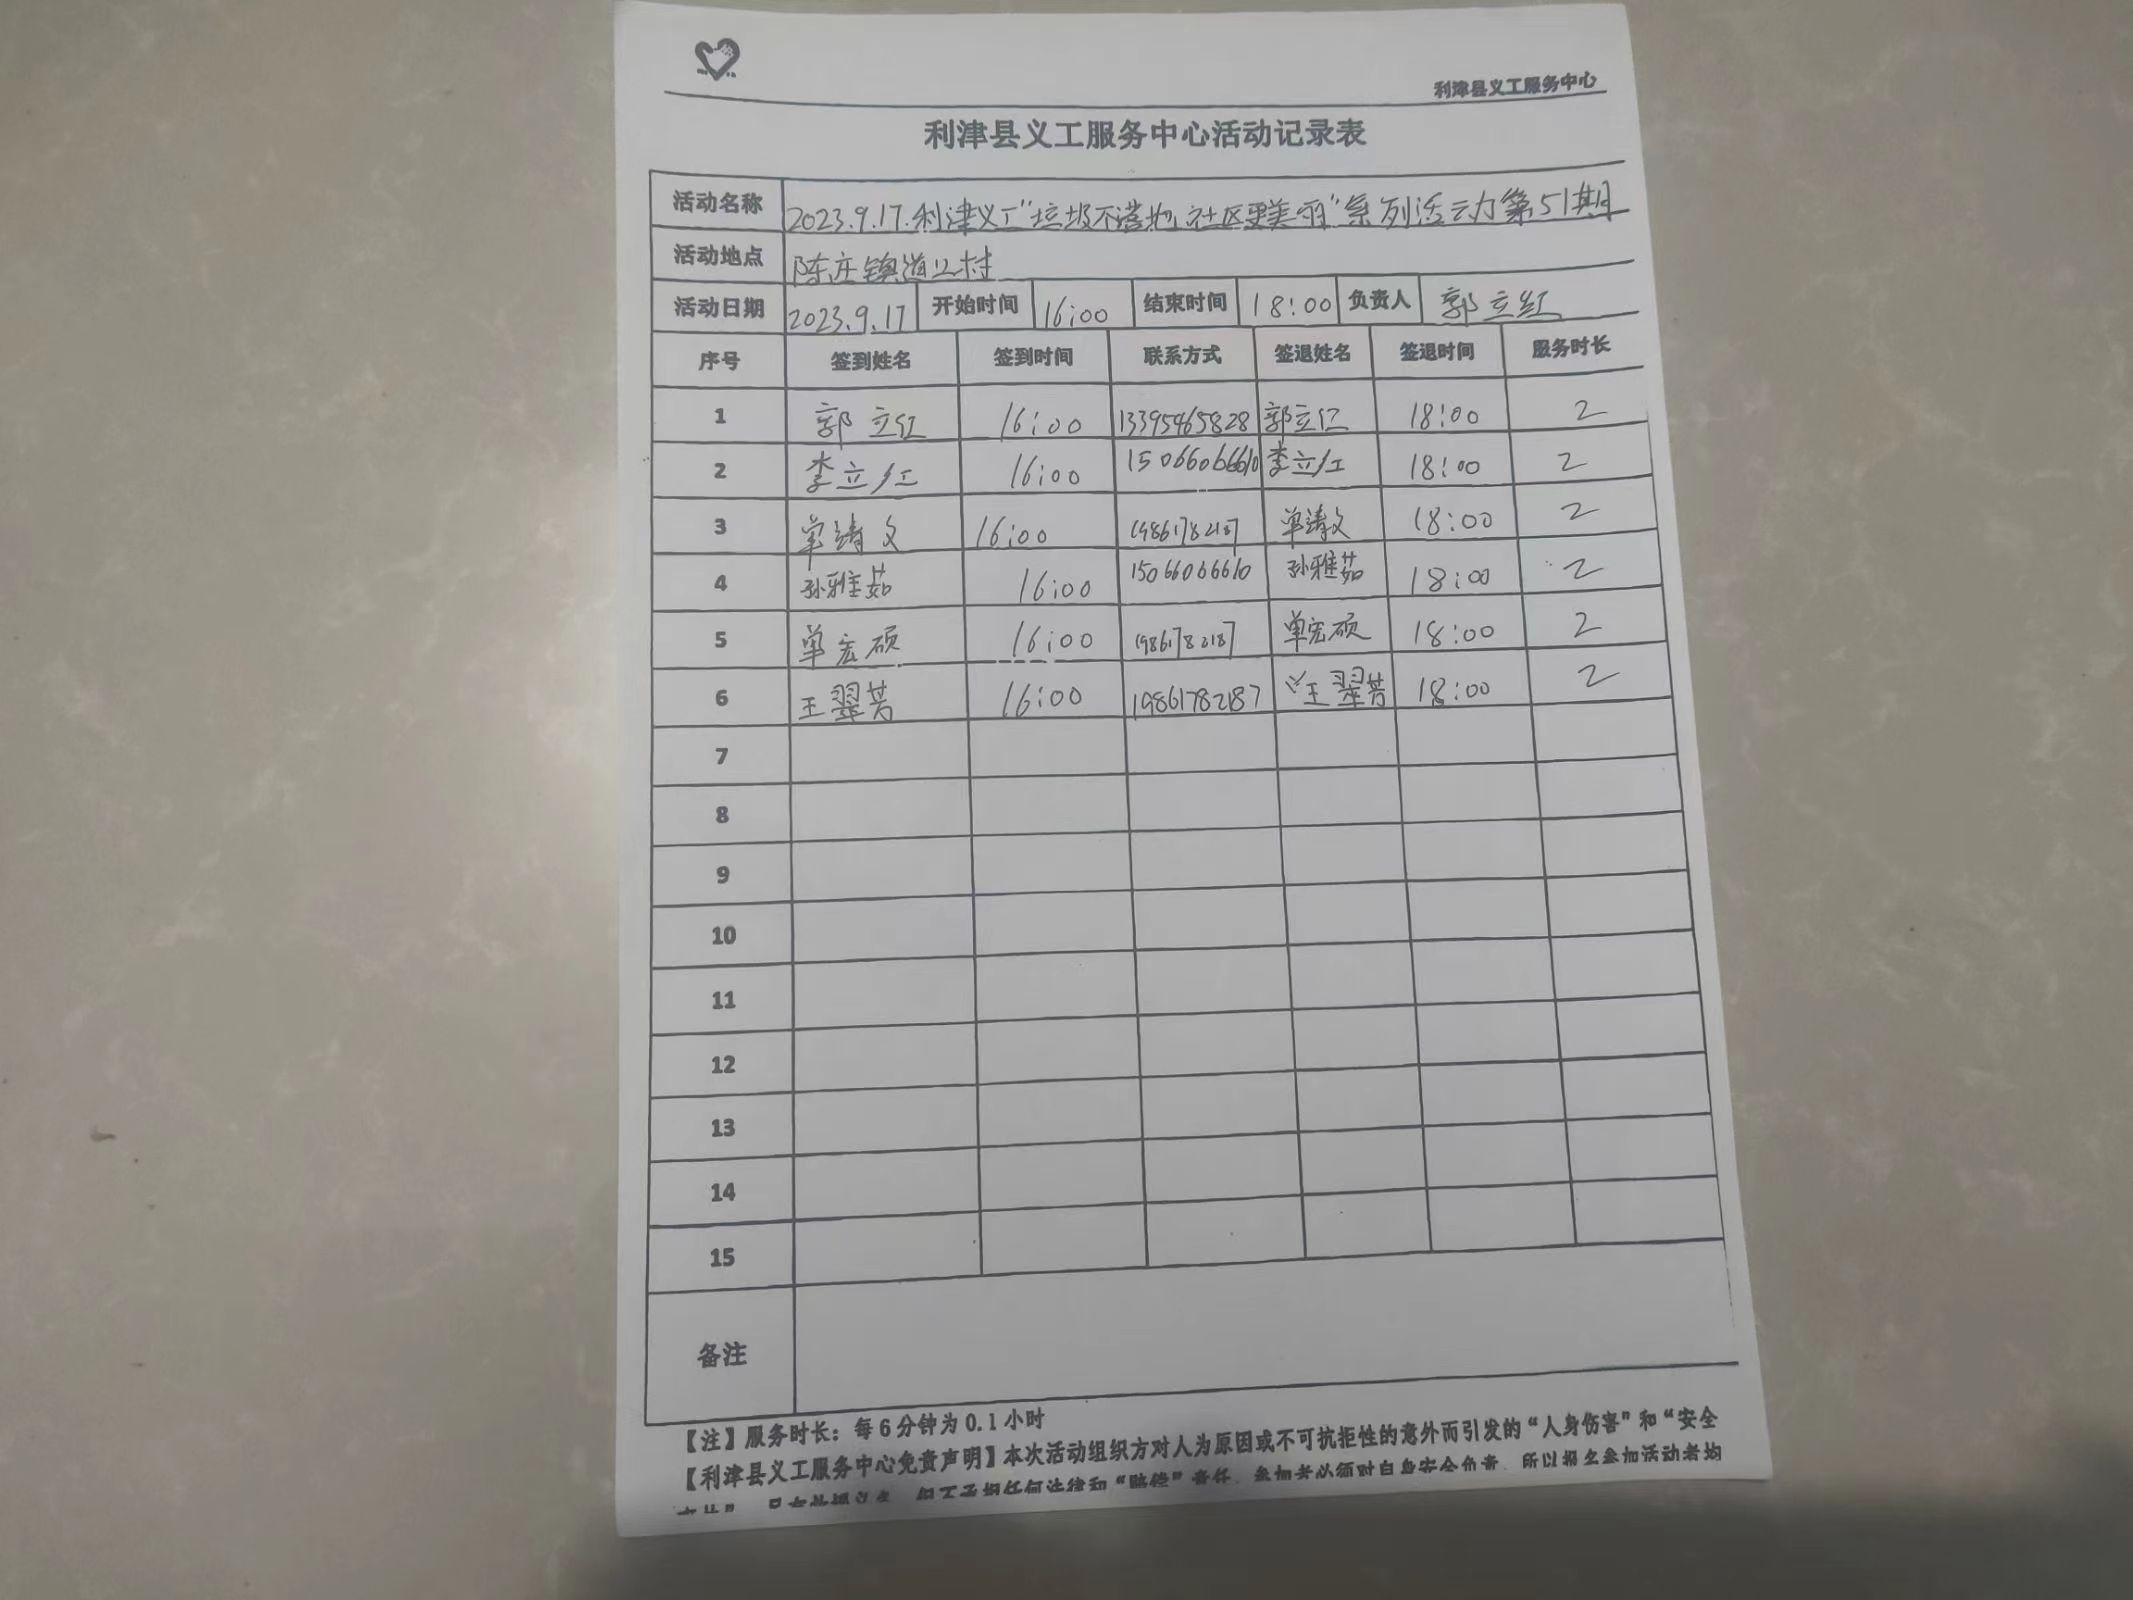 利津县义工服务中心
利津县义工服务中心活动记录表
活动名称 2023.9.17.利津义工"垃圾不落地,社区更美丽"系列活动第51期
活动地点 陈庄镇道口村
活动日期 2023.9.17 开始时间 16:00 结束时间 18:00 负责人 郭立红
序号 签到姓名 签到时间 联系方式 签退姓名 签退时间 服务时长
1 郭立红 16:00 13395465828 郭立红 18:00 2
2 李立红 16:00 15066066610 李立红 18:00 2
3 单靖文 16:00 19861782187 单靖文 18:00 2
4 孙雅茹 16:00 15066066610 孙雅茹 18:00 2
5 单宏硕 16:00 19861782187 单宏硕 18:00 2
6 王翠芳 16:00 19861782187 王翠芳 18:00 2
7
8
9
10
11
12
13
14
15
备注
【注】服务时长:每6分钟为0.1小时
【利津县义工服务中心免责声明】本次活动组织方对人为原因或不可抗拒性的意外而引发的“人身伤害”和“安全